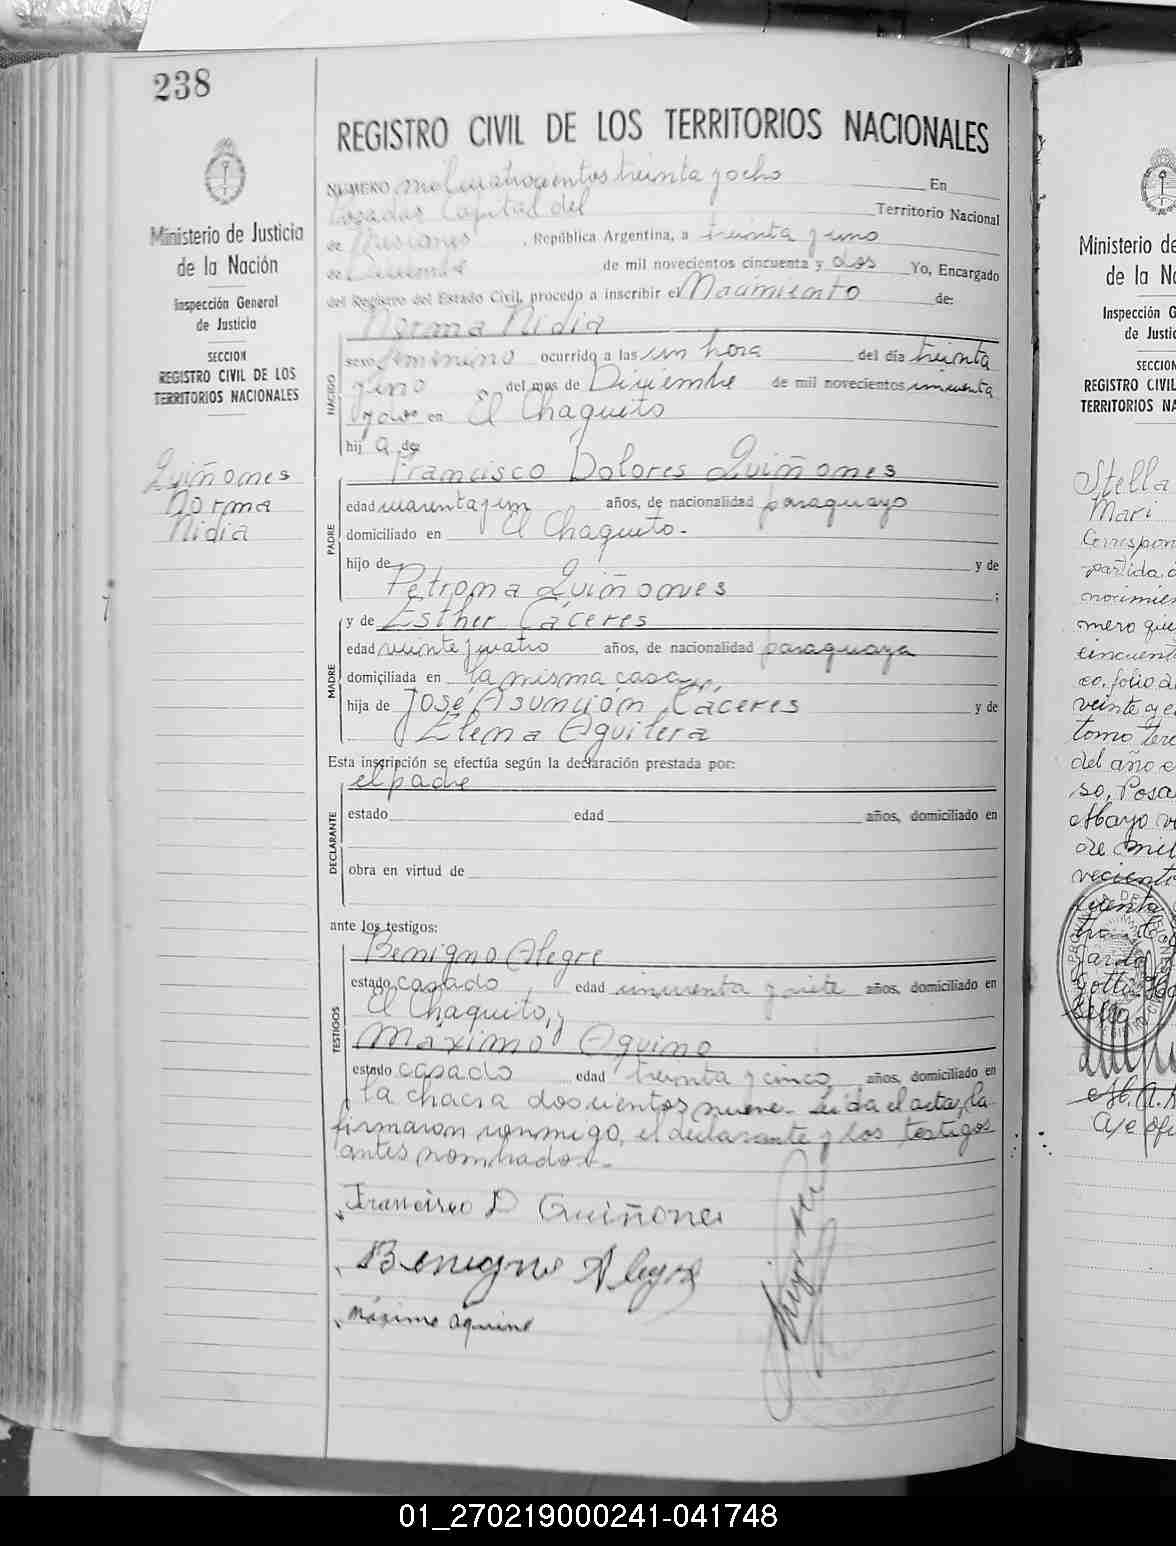 238
REGISTRO CIVIL DE LOS TERRITORIOS NACIONALES
Ministerio de Justicia
de la Nación
Inspección General
de Justicia
SECCION
REGISTRO CIVIL DE LOS
TERRITORIOS NACIONALES
Quiñones
Norma
Nidia
NUMERO mil cuatrocientos treinta y ocho En
Posadas Capital del Territorio Nacional
de Misiones, República Argentina, a treinta y uno
de Diciembre de mil novecientos cincuenta y dos Yo, Encargado
del Registro del Estado Civil, procedo a inscribir el Nacimiento de:
Norma Nidia
NACIDO
sexo femenino ocurrido a las un hora del día treinta
y uno del mes de Diciembre de mil novecientos cincuenta
y dos en El Chaquito
hij a de
Francisco Dolores Quiñones
PADRE
edad cuarenta y un años, de nacionalidad paraguayo
domiciliado en El Chaquito.-
hijo de y de
Petrona Quiñones ;
y de Esther Cáceres
MADRE
edad veinte y cuatro años, de nacionalidad paraguaya
domiciliada en la misma casa
hija de José Asunción Cáceres y de
Elena Aguilera
Esta inscripción se efectúa según la declaración prestada por:
el padre
DECLARANTE
estado edad años, domiciliado en
obra en virtud de
ante los testigos:
Benigno Alegre
TESTIGOS
estado casado edad cincuenta y siete años, domiciliado en
El Chaquito, y
Máximo Aquino
estado casado edad treinta y cinco, años, domiciliado en
la chacra doscientos nueve.- Leída el acta, la
firmaron conmigo, el declarante y los testigos
antes nombrados.-
Francisco D Quiñones
Benigno Alegre
máximo aquino
Ministerio de
de la Na
Inspección G
de Justic
SECCION
REGISTRO CIVIL
TERRITORIOS NA
Stella
Mari
Correspon
partida
nacimien
mero qui
cincuent
co, folio d
veinte y
tomo ter
del año
so, Posa
Mayo v
de mil
novecient
01_270219000241-041748